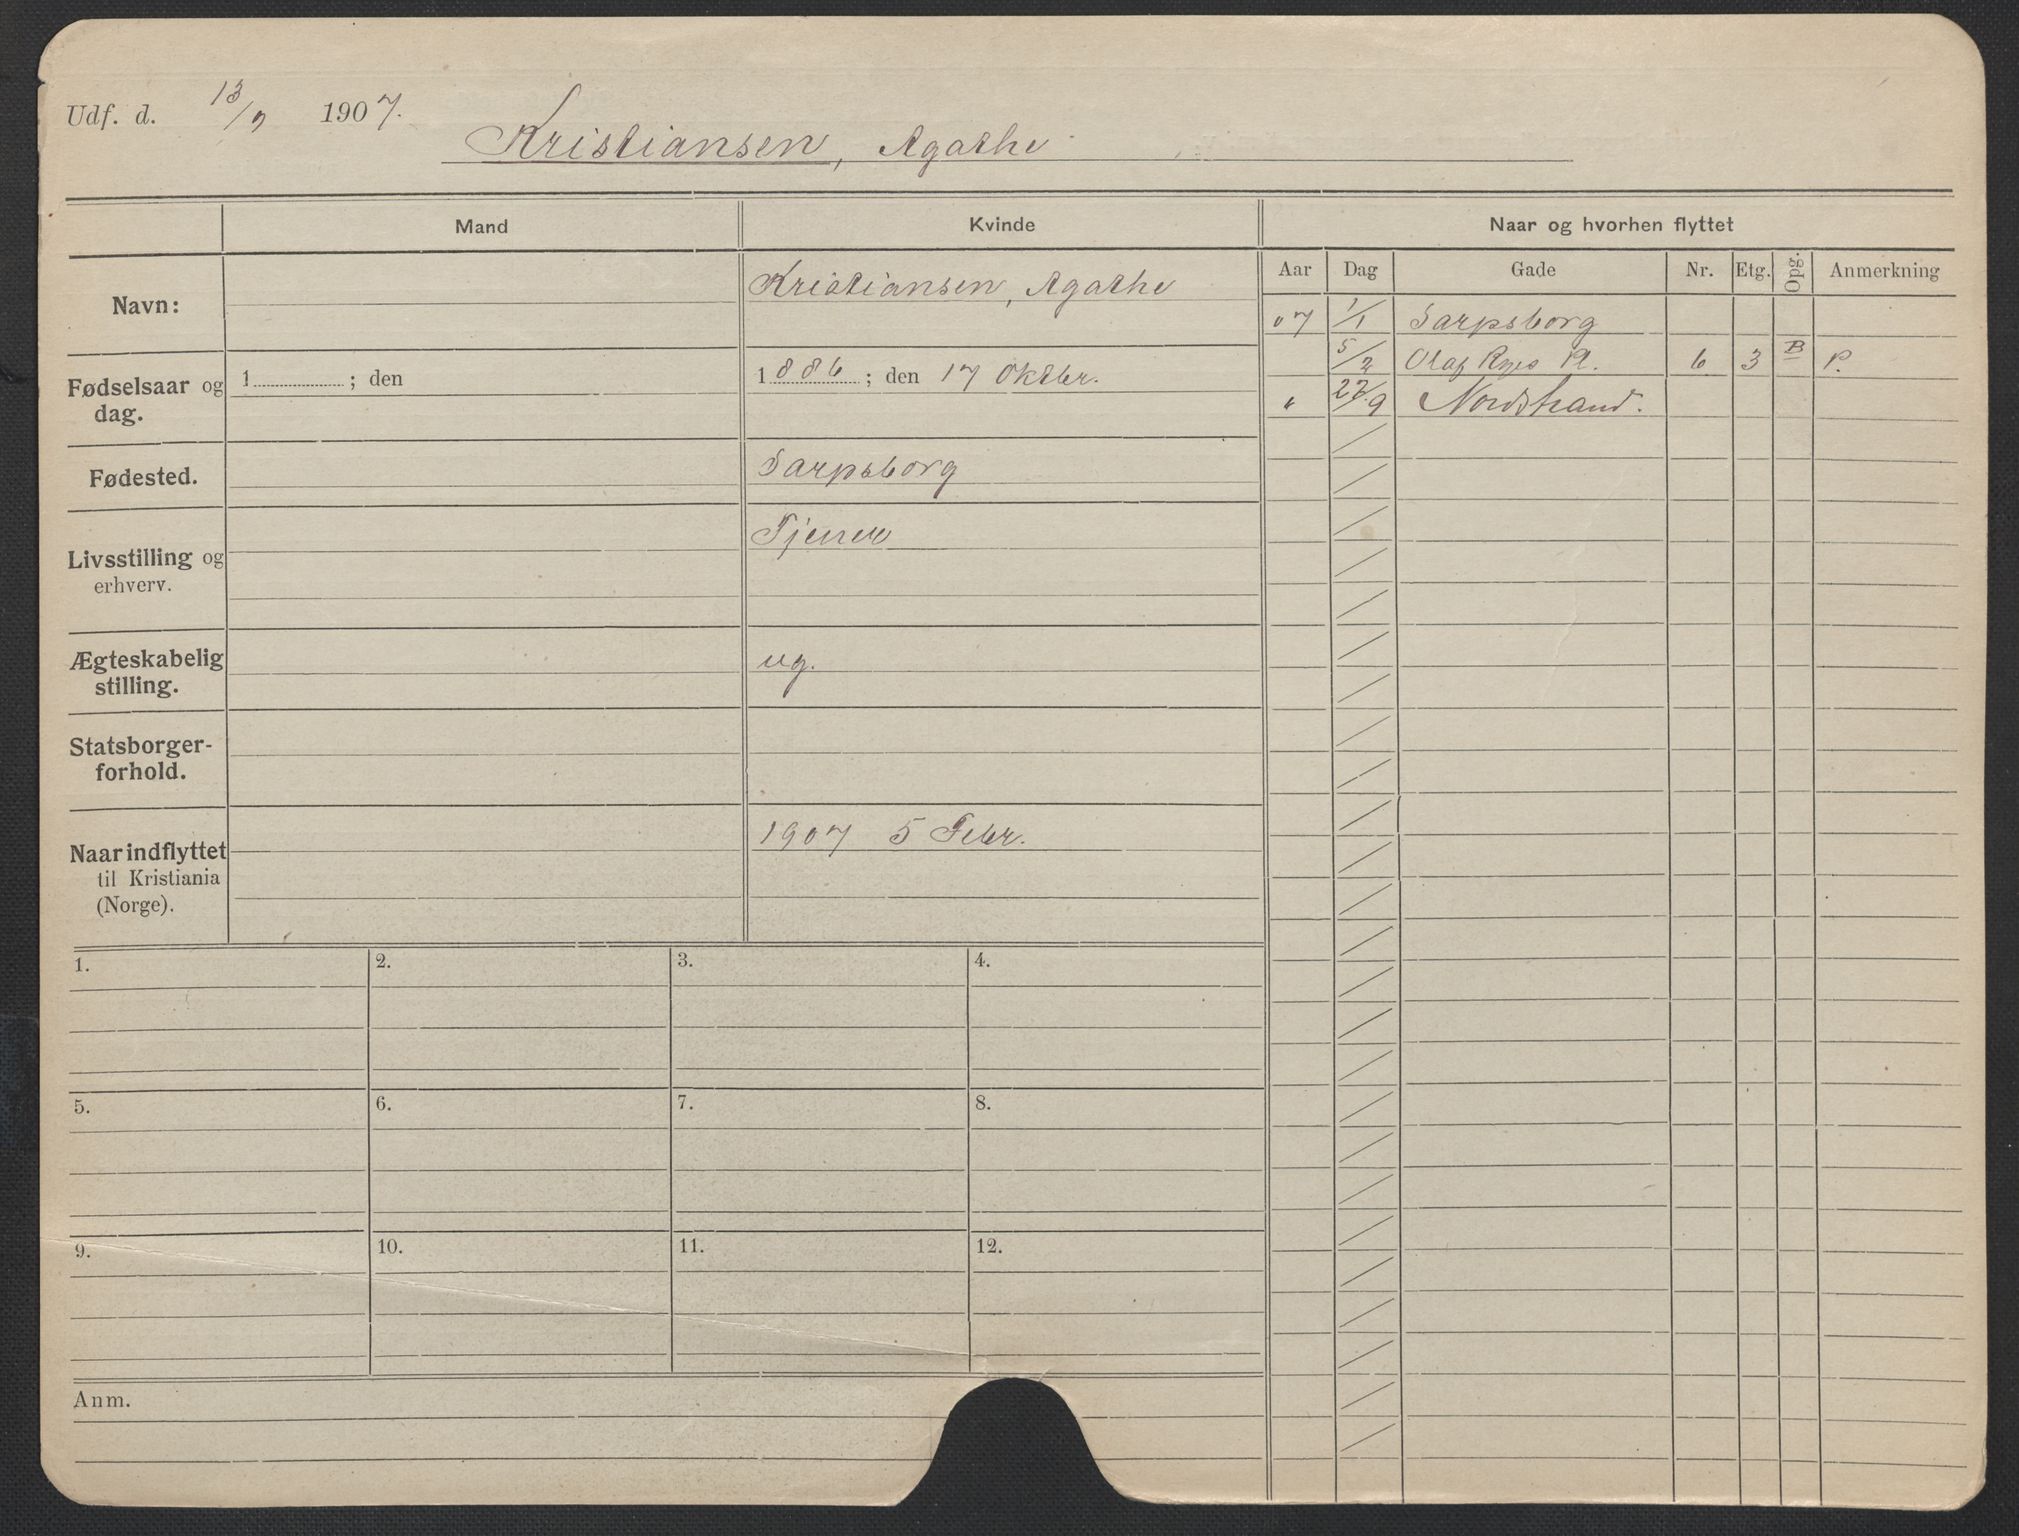 Udf. d. 13/9 1907.
Kristiansen, Agathe
Mand Kvinde Naar og hvorhen flyttet
Aar Dag Gade Nr. Etg. Opg. Anmerkning
Navn: Kristiansen, Agathe
07 1/1 Sarpsborg
5/2 Olaf Ryes Pl. 6 3 B P.
" 27/9 Nordstrand.
Fødselsaar og 1 ; den 1886 ; den 17 Oktbr.
dag.
Fødested. Sarpsborg
Livsstilling og Tjener
erhverv.
Ægteskabelig ug.
stilling.
Statsborger-
forhold.
Naar indflyttet 1907 5 Febr.
til Kristiania
(Norge).
1. 2. 3. 4.
5. 6. 7. 8.
9. 10. 11. 12.
Anm.